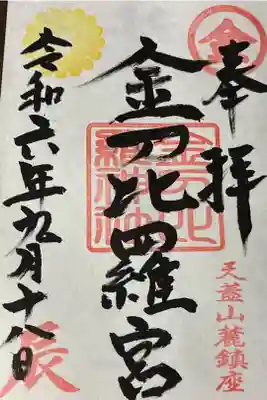 奉拝
金
天蓋山麓鎮座
金刀比羅宮
令和六年九月十八日
辰